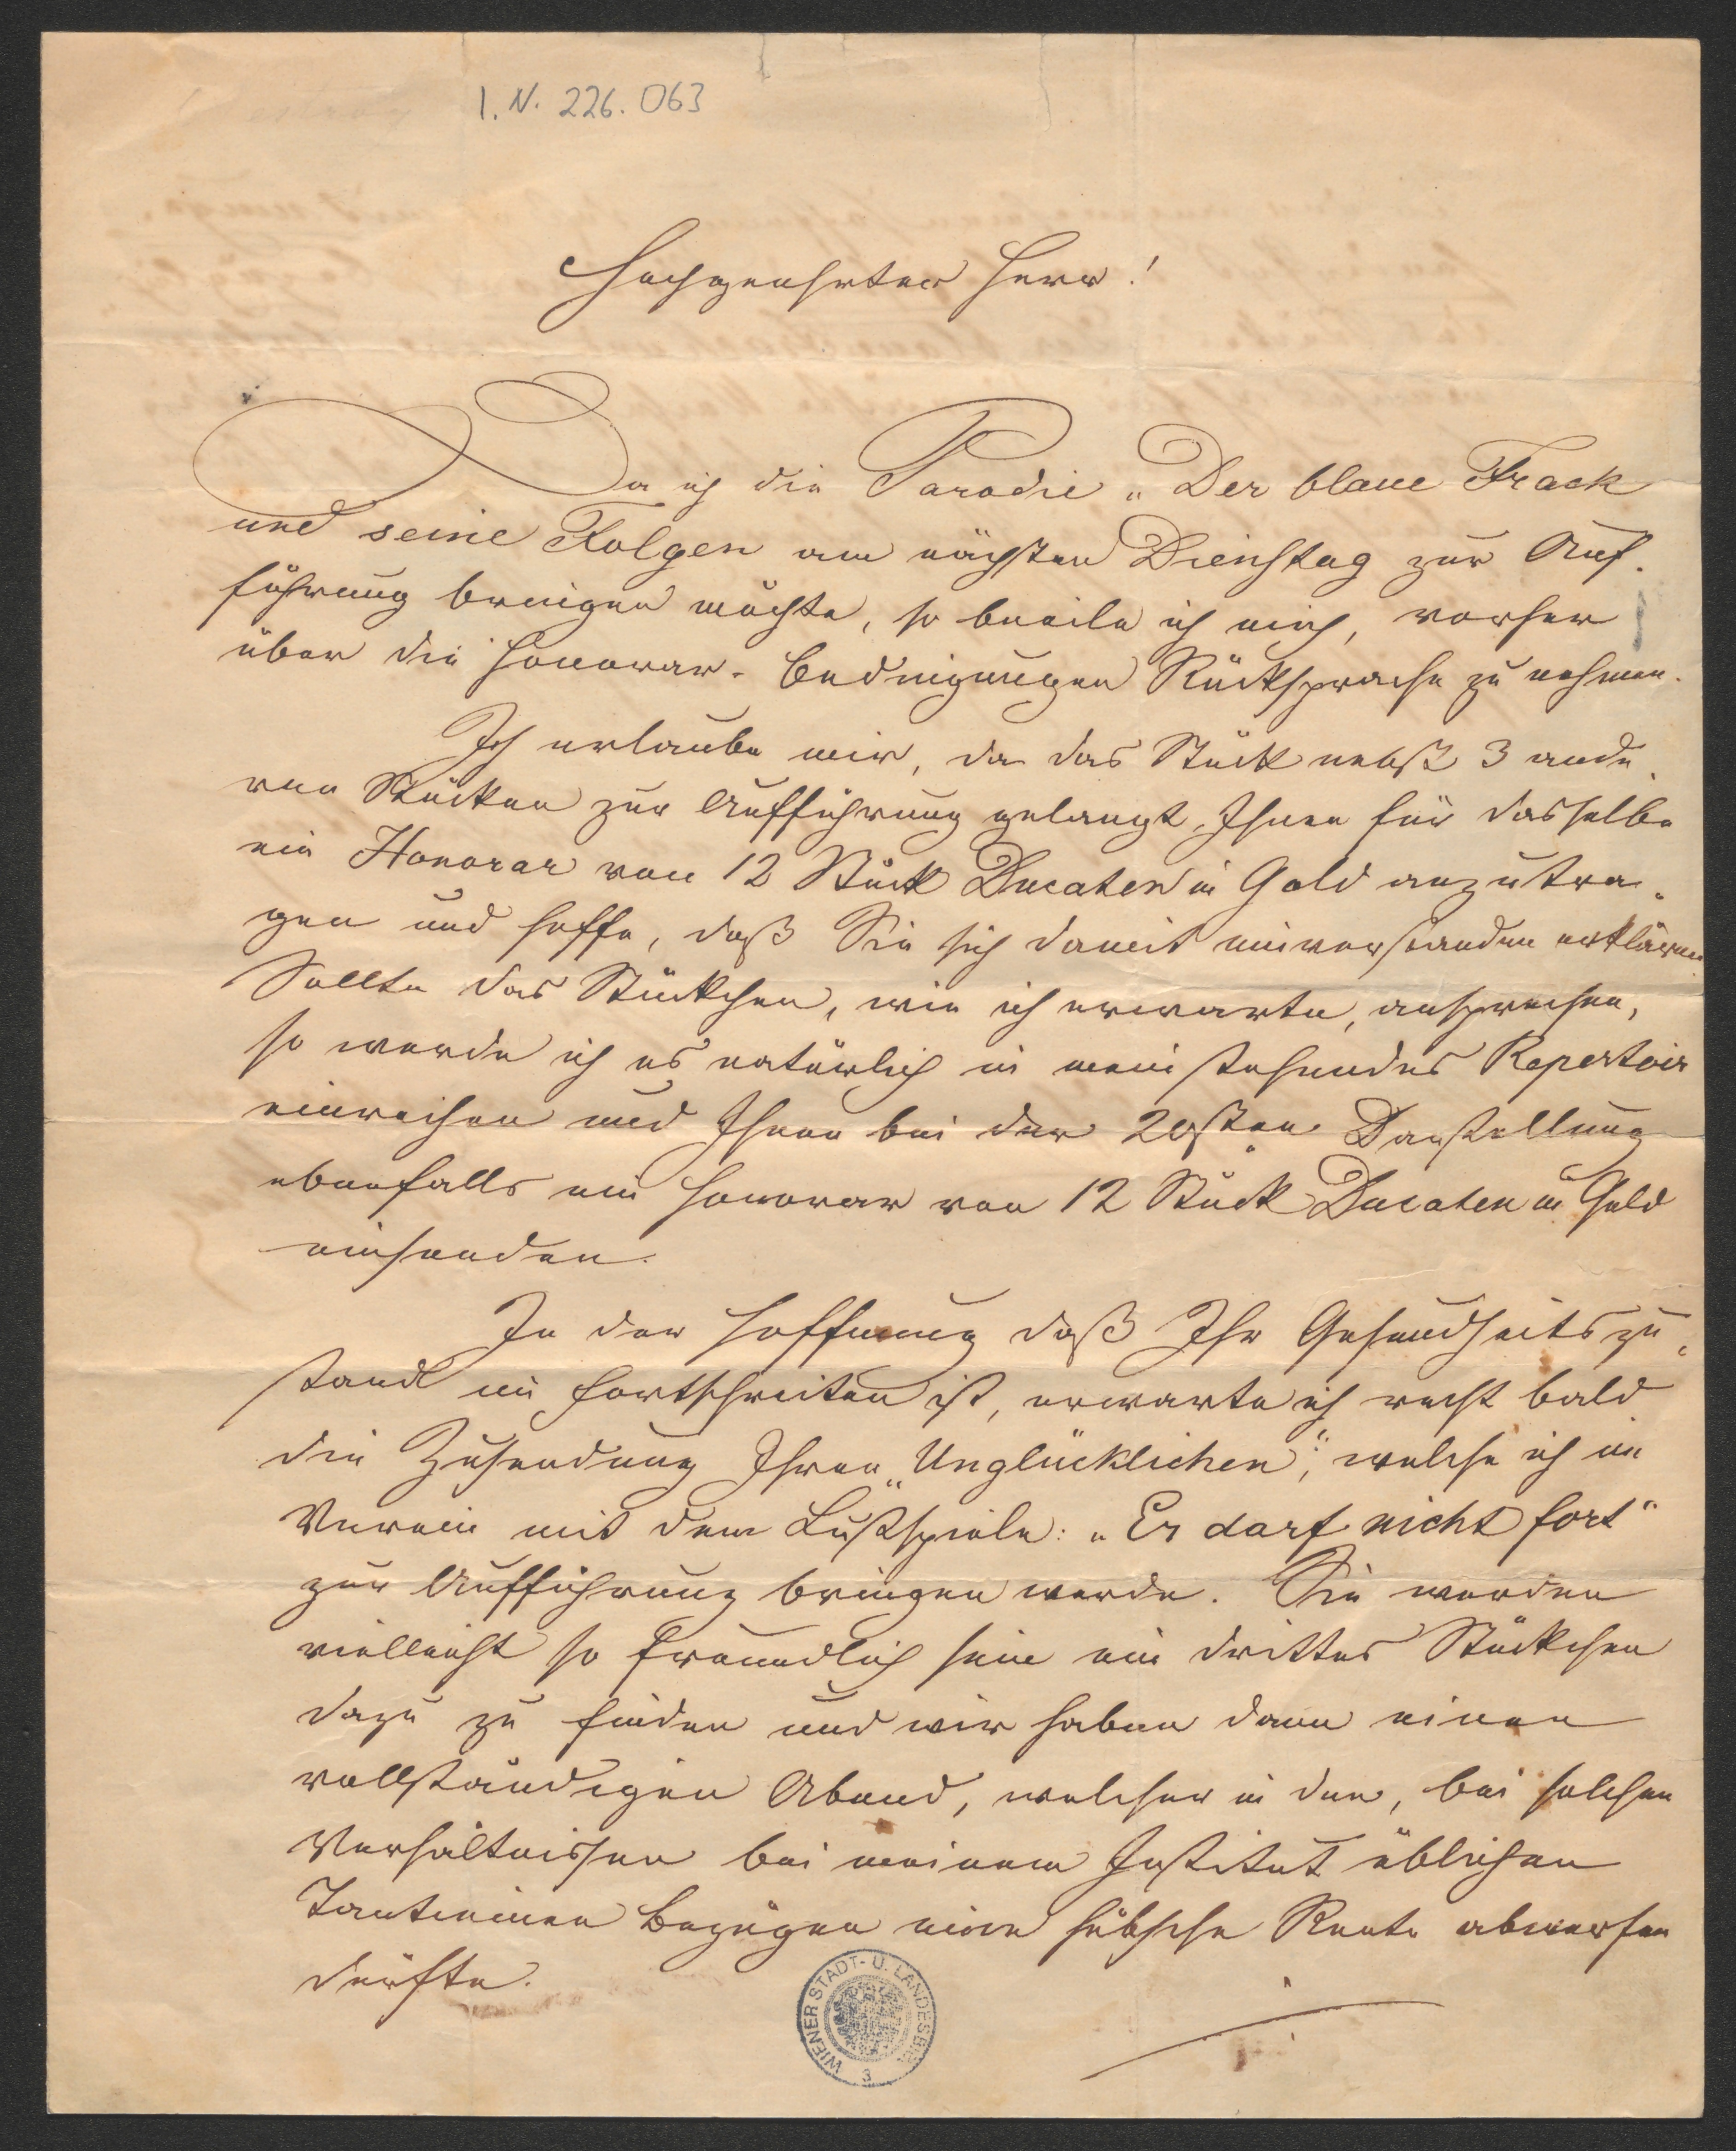 I. N. 226.063
Hochgeehrter Herr!
Da ich die Parodie „Der blaue Frack
und seine Folgen am nächsten Dienstag zur Auf-
führung bringen möchte, so beeile ich mich, vorher
über die Honorar-Bedingungen Rücksprache zu nehmen.
Ich erlaube mir, da das Stück nebst 3 ande
ren Stücken zur Aufführung gelangt, Ihnen für dasselbe
ein Honorar von 12 Stück Ducaten in Gold anzutra-
gen und hoffe, daß Sie sich damit einverstanden erklären.
Sollte das Stückchen, wie ich erwarte, ansprechen,
so werde ich es natürlich in mein stehendes Repertoir
einreihen und Ihnen bei der 20sten Darstellung
ebenfalls ein Honorar von 12 Stück Ducaten in Gold
einsenden.
In der Hoffnung daß Ihr Gesundheitszu-
stand im Fortschreiten ist, erwarte ich recht bald
die Zusendung Ihrer „Unglücklichen", welche ich im
Verein mit dem Lustspiele: „Er darf nicht fort"
zur Aufführung bringen werde. Sie werden
vielleicht so freundlich sein ein drittes Stückchen
dazu zu finden und wir haben dann einen
vollständigen Abend, welcher in den, bei solchen
Verhältnissen bei meinem Institut üblichen
Tantiemen Bezügen eine hübsche Rente abwerfen
dürfte.
WIENER STADT- U. LANDESBIBL.
3